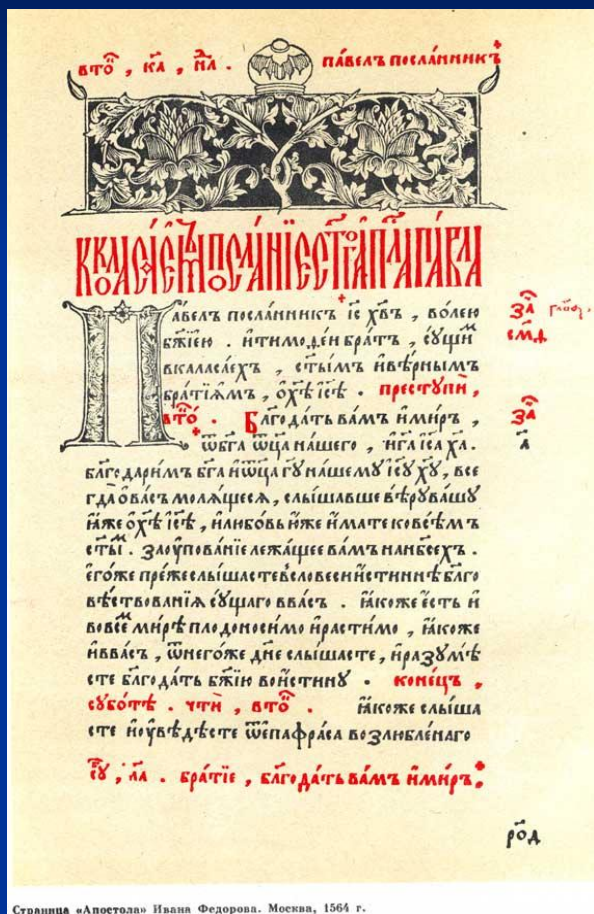 втѡ҇ , к҃а , н҃л . па́велъ посла́нникъ
ккѡлаѡсаѐѡмъ посла́нїе ст҃гѡ ап҇ла па́вла
Па́велъ посла́нникъ і҆с х҃въ , во́лею
бж҃їею . и҆тимоѳе́й бра́тъ , су́щиⷨ
вкаласаехъ , ст҃ы́мъ и҆вѣ́рнымъ
бра́тїѧмъ , ѡ҆хⷭ҇ѣ і҆с҃ѣ . преступѝ ,
втѡ҇ . Бл҃года́ть ва́мъ и҆ми́ръ ,
ѿбг҃а ѿц҃а на́шего , и҆г҃а і҆с҃а х҃а .
благодари́мъ бг҃а и҆ѿц҃а гу҃ на́шему і҆с҃у х҃у , все
гда̀ ѡ҆ва́съ молѧ́щесѧ , слы́шавше вѣ́ру ва́шу
ꙗ҆́же ѡ҆хⷭ҇ѣ і҆с҃ѣ , и҆любо́вь ю҆́же и҆́мате ковсѣ́мъ
ст҃ы́ⷨ . заоу҆пова́нїе лежа́щее ва́мъ нанб҃сехъ .
е҆го́же пре́же слы́шасте всловесѝ и҆́стиннѣ бл҃го
вѣ́ствованїѧ су́щаго вва́съ . ꙗ҆́коже е҆́сть и҆
вовсе́ⷨ ми́рѣ плодоноси́мо и҆расти́мо , ꙗ҆́коже
и҆вва́съ , ѿнего́же дн҃е слы́шасте , и҆разумѣ́
сте бл҃года́ть бж҃їю вои́стину . коне́цъ ,
субо́тѣ . чтѝ , втѡ҇ . ꙗ҆́коже слы́ша
сте и҆оу҆вѣ́дѣсте ѿепафра́са возлю́бленаго
є҃у , л҃а . бра́тїе , бл҃года́ть ва́мъ и҆ми́ръ
за҄
см҃д
за҄
а҃
ро҃д
Страница «Апостола» Ивана Федорова. Москва, 1564 г.